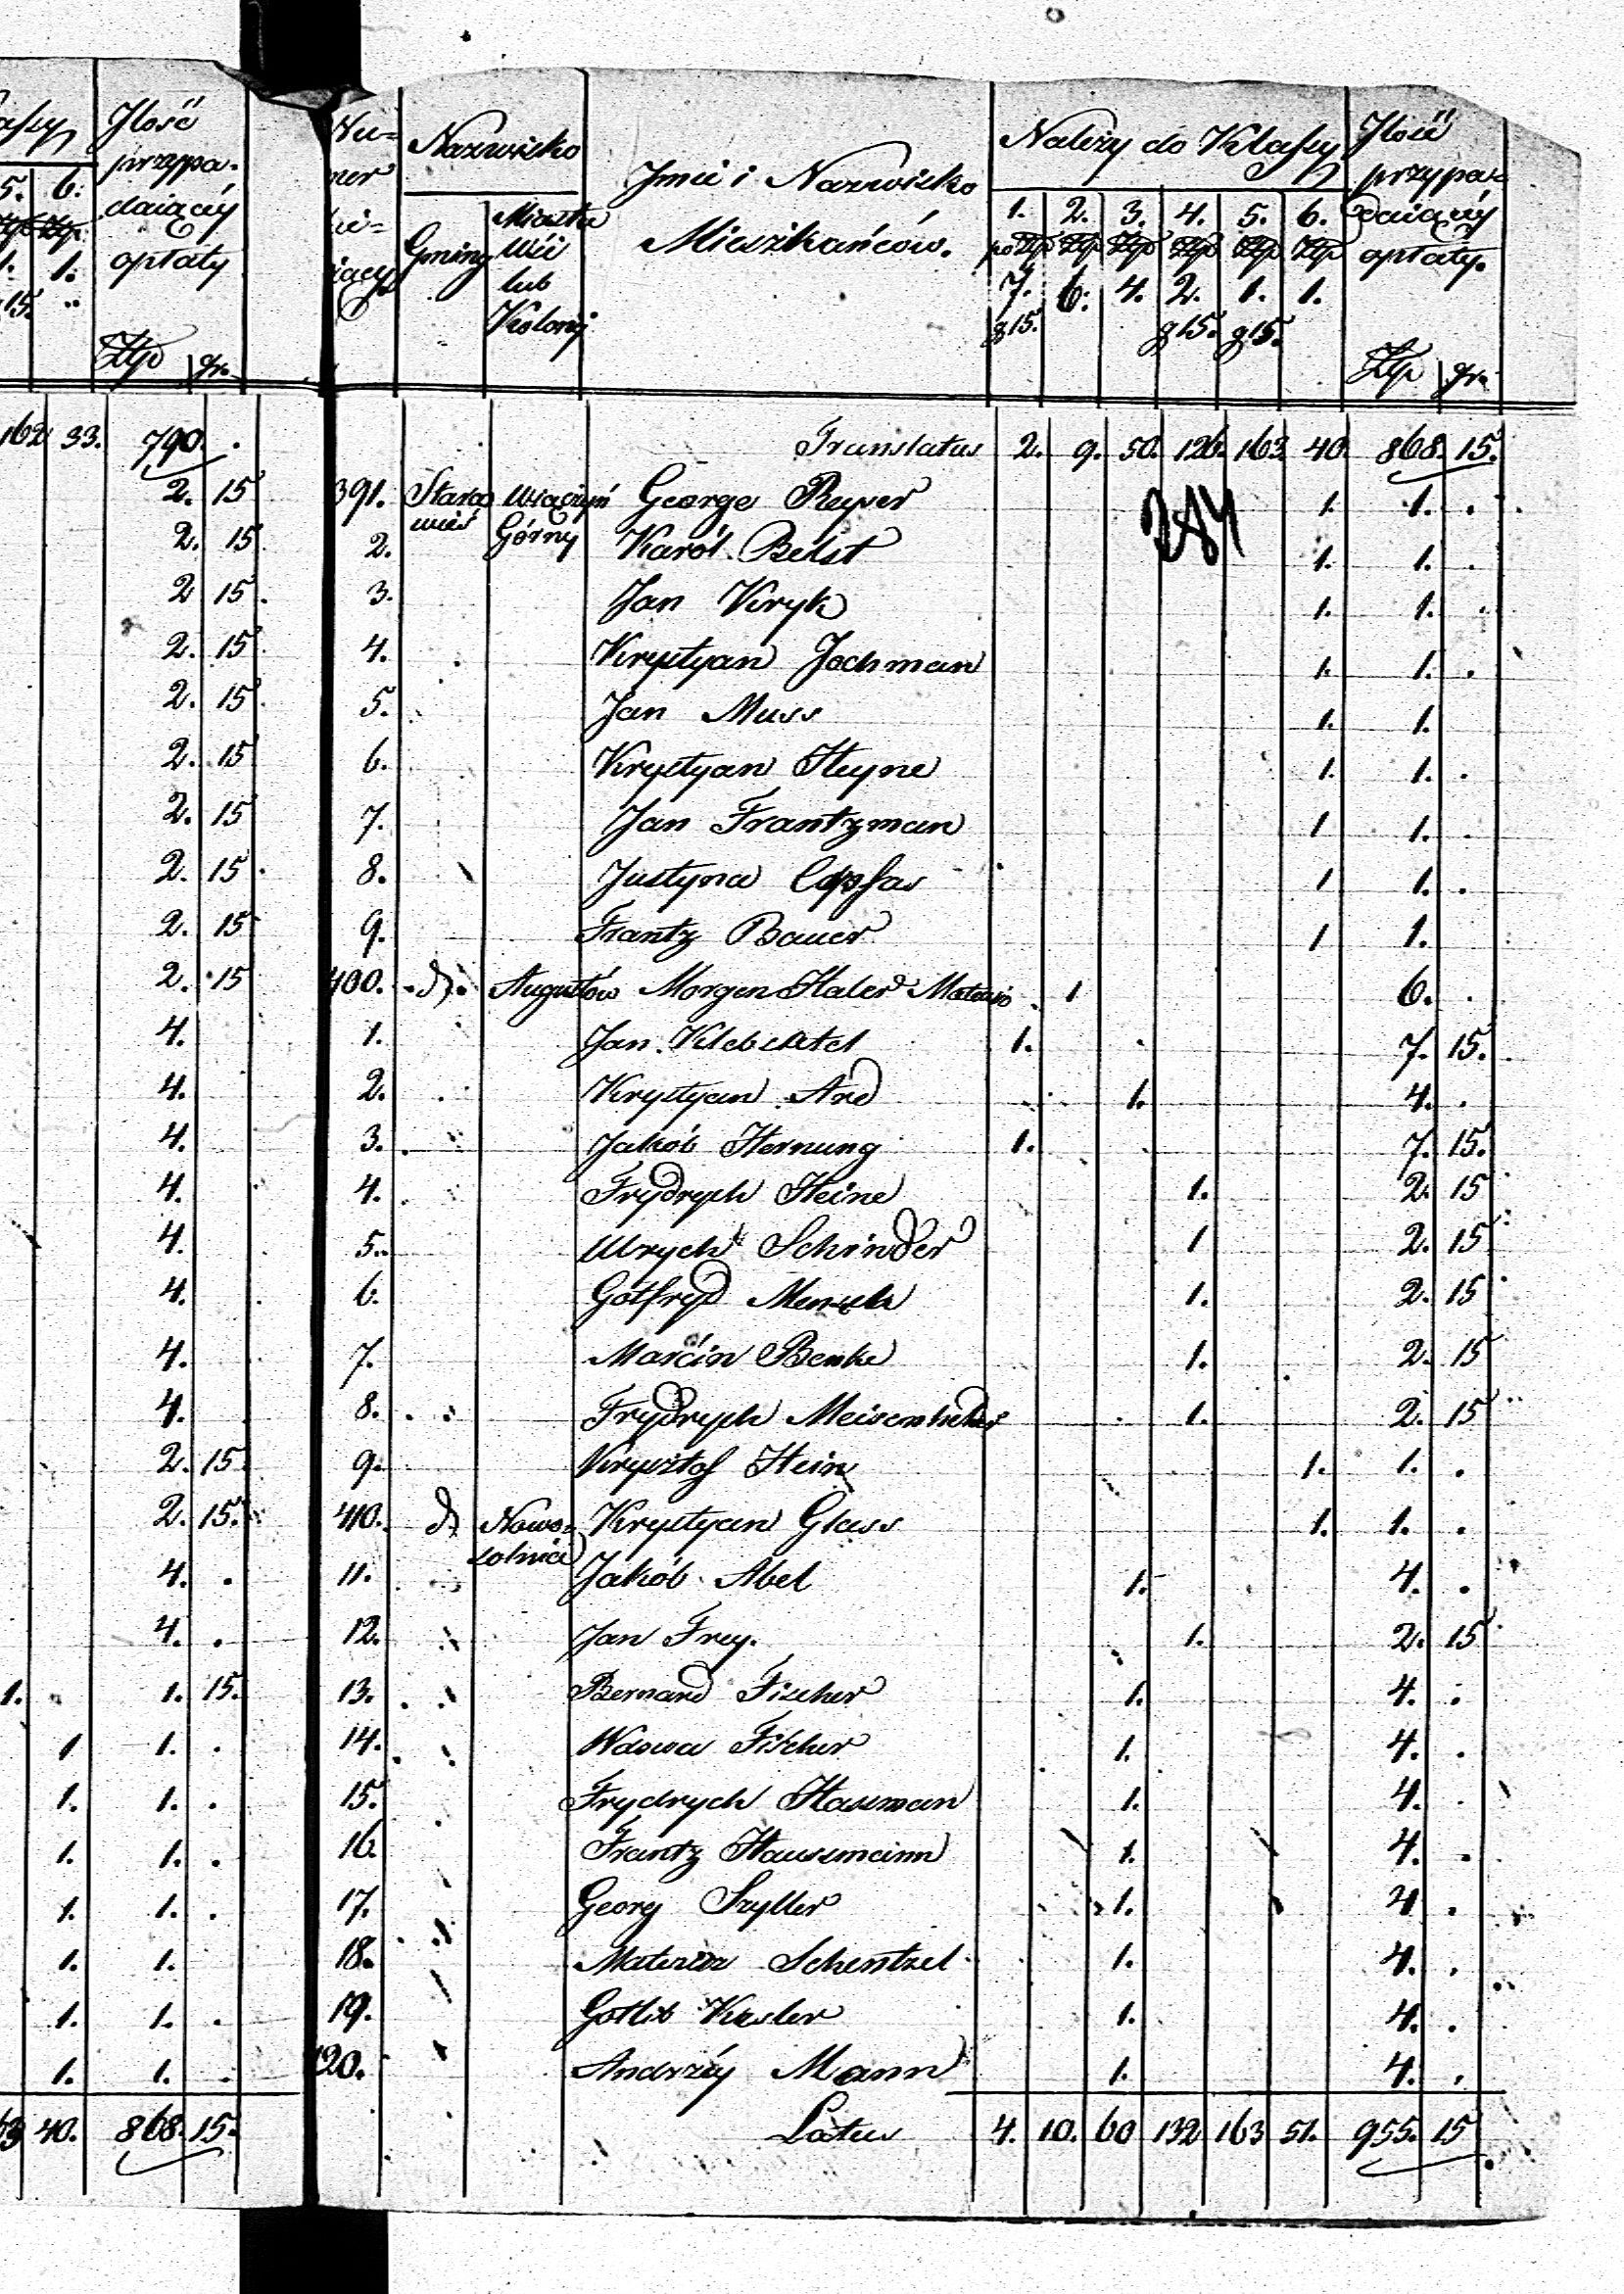 Ilość
przypa-
daiącéy
opłaty
5. 6.
1. 1.
15. "
Złp gr.
162 33. 790. .
2. 15
2. 15
2 15.
2. 15
2. 15
2. 15
2. 15
2. 15
2. 15
2. 15
4.
4.
4.
4.
4.
4.
4.
4.
2. 15
2. 15.
4. .
4. .
1. 1. 15.
1 1. .
1. 1. .
1. 1. .
1. 1. .
1. 1.
1. 1. .
1. 1. .
63 40. 868. 15.
Nu=
mer
Nazwisko
Gminy
Miasta
Wsi
lub
Kolonij
Jmie i Nazwisko
Mieszkańców.
Należy do Klassy
1. 2. 3. 4. 5. 6.
po Złp Złp Złp Złp Złp Złp
7. 6. 4. 2. 1. 1.
g 15. g 15. g 15.
Ilość
przypa=
daiącéy
opłaty.
Złp gr.
Translatus 2. 9. 50. 126. 163. 40. 868. 15.
391. Stara wieś Wiączyń Górny George Reyser 1. 1. .
2. Karól Belst 1. 1. .
3. Jan Kryk 1. 1. .
4. Krystyan Jochman 1. 1. .
5. Jan Muss 1. 1.
6. Krystyan Heyne 1. 1. .
7. Jan Frantzman 1 1. .
8. Justyna 1 1. .
9. Frantz Bauer 1 1.
400. d. Augustów Morgen Haler 1 6. .
1. Jan 1. 7. 15.
2. Krystyan And 1. 4. .
3. Jakób Hernung 1. 7. 15.
4. Frydrych Heine 1. 2. 15
5. Schinder 1 2. 15
6. Gotfryd Mensch 1. 2. 15
7. Marcin Benke 1. 2. 15
8. Frydrych 1. 2. 15
9. Krysztof Hein 1. 1. .
410. d Nowo=solnica Krystyan Glass 1. 1. .
11. Jakób Abel 1. 4. .
12. Jan Frey. 1. 2. 15
13. Bernard Fischer 1. 4. .
14. Wdowa Fischer 1. 4. .
15. Frydrych Hasman 1. 4. .
16. Frantz Hausmann 1. 4. .
17. Georg Szyller 1. 4 .
18. Schentzel 1. 4. .
19. Gotlib Kesler 1. 4. .
20. Andrzéy Mann 1. 4. .
Latus 4. 10. 60 132 163 51. 955. 15